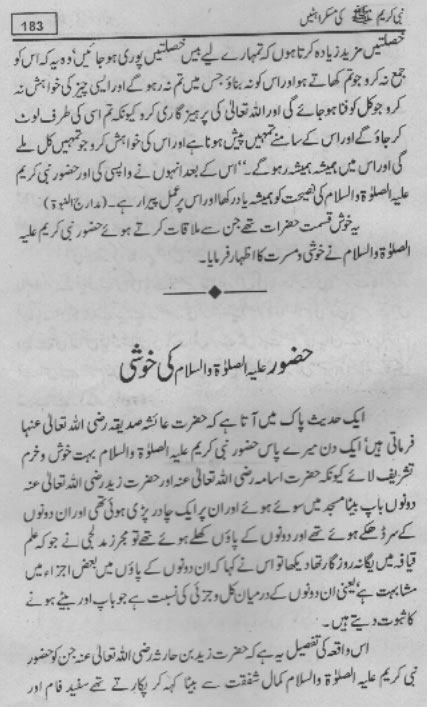 نبی کریم ﷺ کی مسکراہٹیں
183
خصلتیں مزید زیادہ کرتا ہوں کہ تمہارے لیے بیس خصلتیں پوری ہو جائیں' وہ یہ کہ اس کو
جمع نہ کرو جو تم کھاتے ہو اور اس کو نہ بناؤ جس میں تم نہ ہو گے اور ایسی چیز کی خواہش نہ
کرو جو کل کو فنا ہو جائے گی اور اللہ تعالیٰ کی پرہیز گاری کرو کیونکہ تم اسی کی طرف لوٹ
کر جاؤ گے اور اس کے سامنے تمہیں پیش ہونا ہے اور اس کی خواہش کرو جو تمہیں کل ملے
گی اور اس میں ہمیشہ ہمیشہ رہو گے۔“ اس کے بعد انہوں نے واپسی کی اور حضور نبی کریم
علیہ الصلوٰۃ والسلام کی نصیحت کو ہمیشہ یاد رکھا اور اس پر عمل پیرا رہے۔ (مدارج النبوۃ)
یہ خوش قسمت حضرات تھے جن سے ملاقات کرتے ہوئے حضور نبی کریم علیہ
الصلوٰۃ والسلام نے خوشی و مسرت کا اظہار فرمایا۔
حضور علیہ الصلوٰۃ والسلام کی خوشی
ایک حدیث پاک میں آتا ہے کہ حضرت عائشہ صدیقہ رضی اللہ تعالیٰ عنہا
فرماتی ہیں' ایک دن میرے پاس حضور نبی کریم علیہ الصلوٰۃ والسلام بہت خوش و خرم
تشریف لائے کیونکہ حضرت اسامہ رضی اللہ تعالیٰ عنہ اور حضرت زید رضی اللہ تعالیٰ عنہ
دونوں باپ بیٹا مسجد میں سوئے ہوئے اور ان پر ایک چادر پڑی ہوئی تھی اور ان دونوں
کے سر ڈھکے ہوئے تھے اور دونوں کے پاؤں کھلے ہوئے تھے تو مجزز مدلجی نے جو کہ علم
قیافہ میں یگانہ روزگار تھا دیکھا تو اس نے کہا کہ ان دونوں کے پاؤں میں بعض اجزاء میں
مشابہت ہے' یعنی ان دونوں کے درمیان کل و جزئی کی نسبت ہے جو باپ اور بیٹے ہونے
کا ثبوت دیتے ہیں۔
اس واقعہ کی تفصیل یہ ہے کہ حضرت زید بن حارثہ رضی اللہ تعالیٰ عنہ جن کو حضور
نبی کریم علیہ الصلوٰۃ والسلام کمال شفقت سے بیٹا کہہ کر پکارتے تھے سفید فام اور